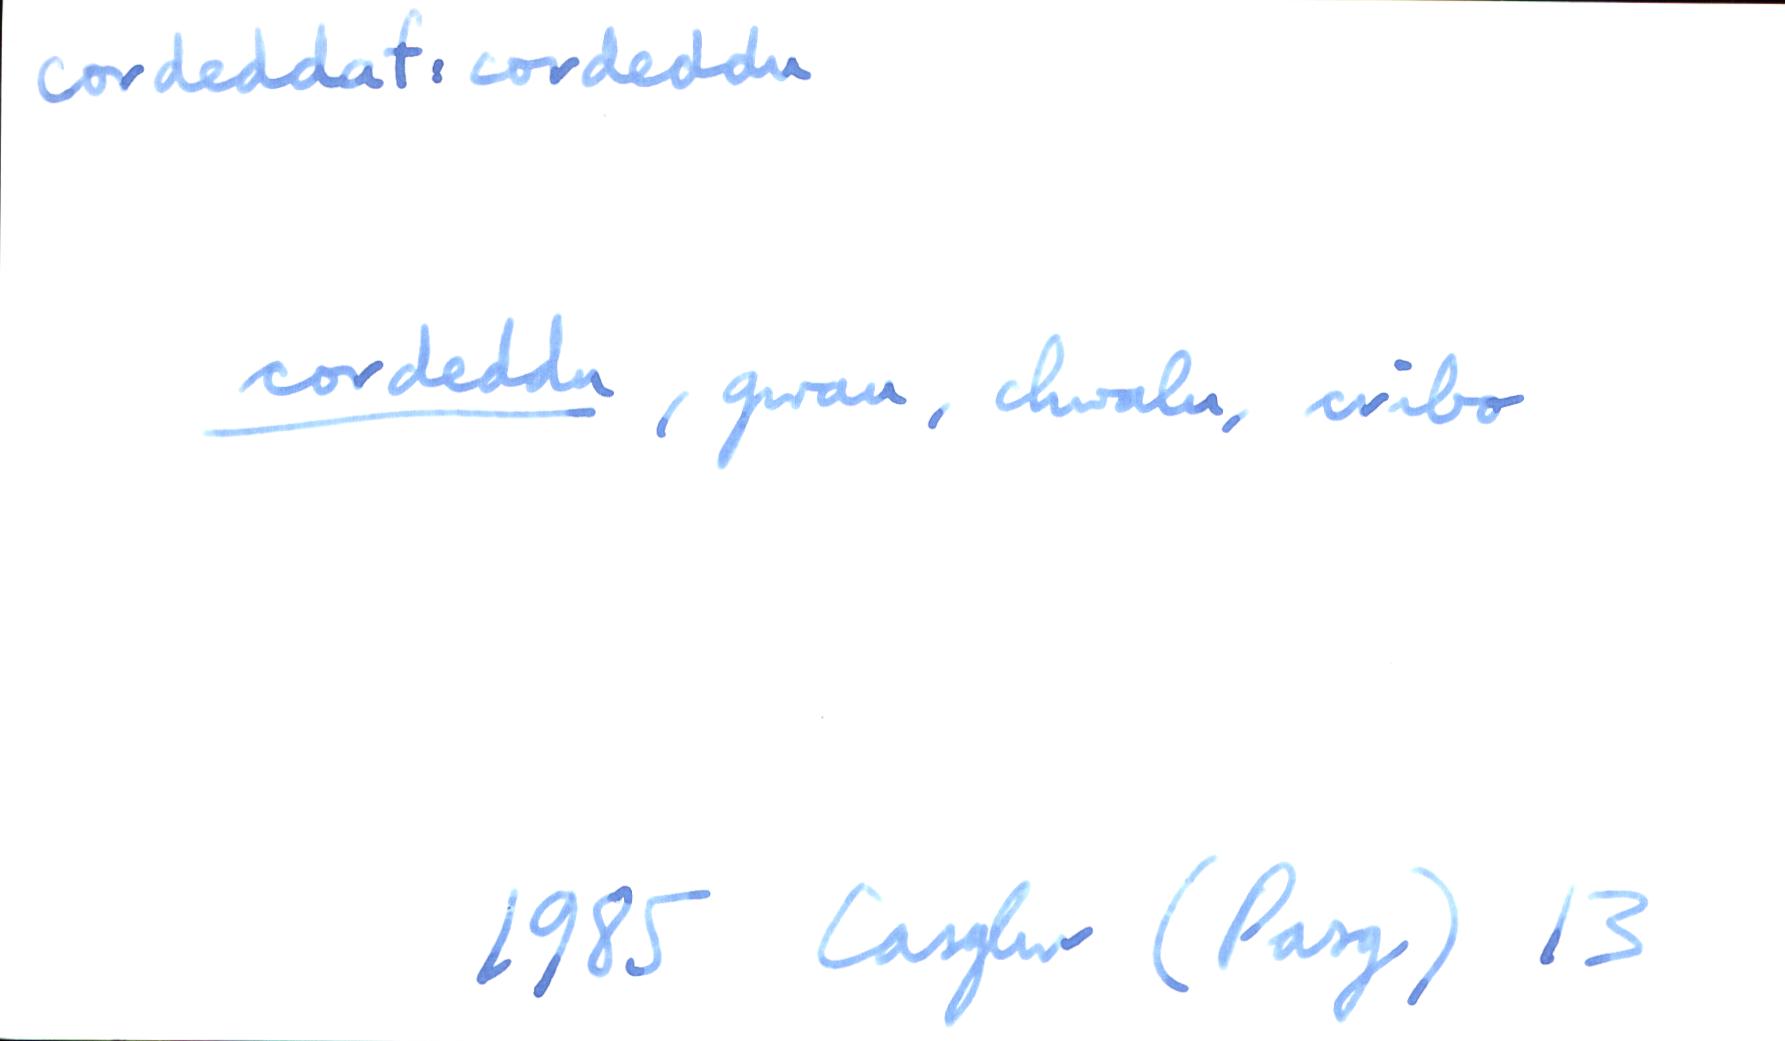 cordeddaf: cordeddu
cordeddu, gwau, chwalu, cribo
1985 Casglwr (Pasg) 13